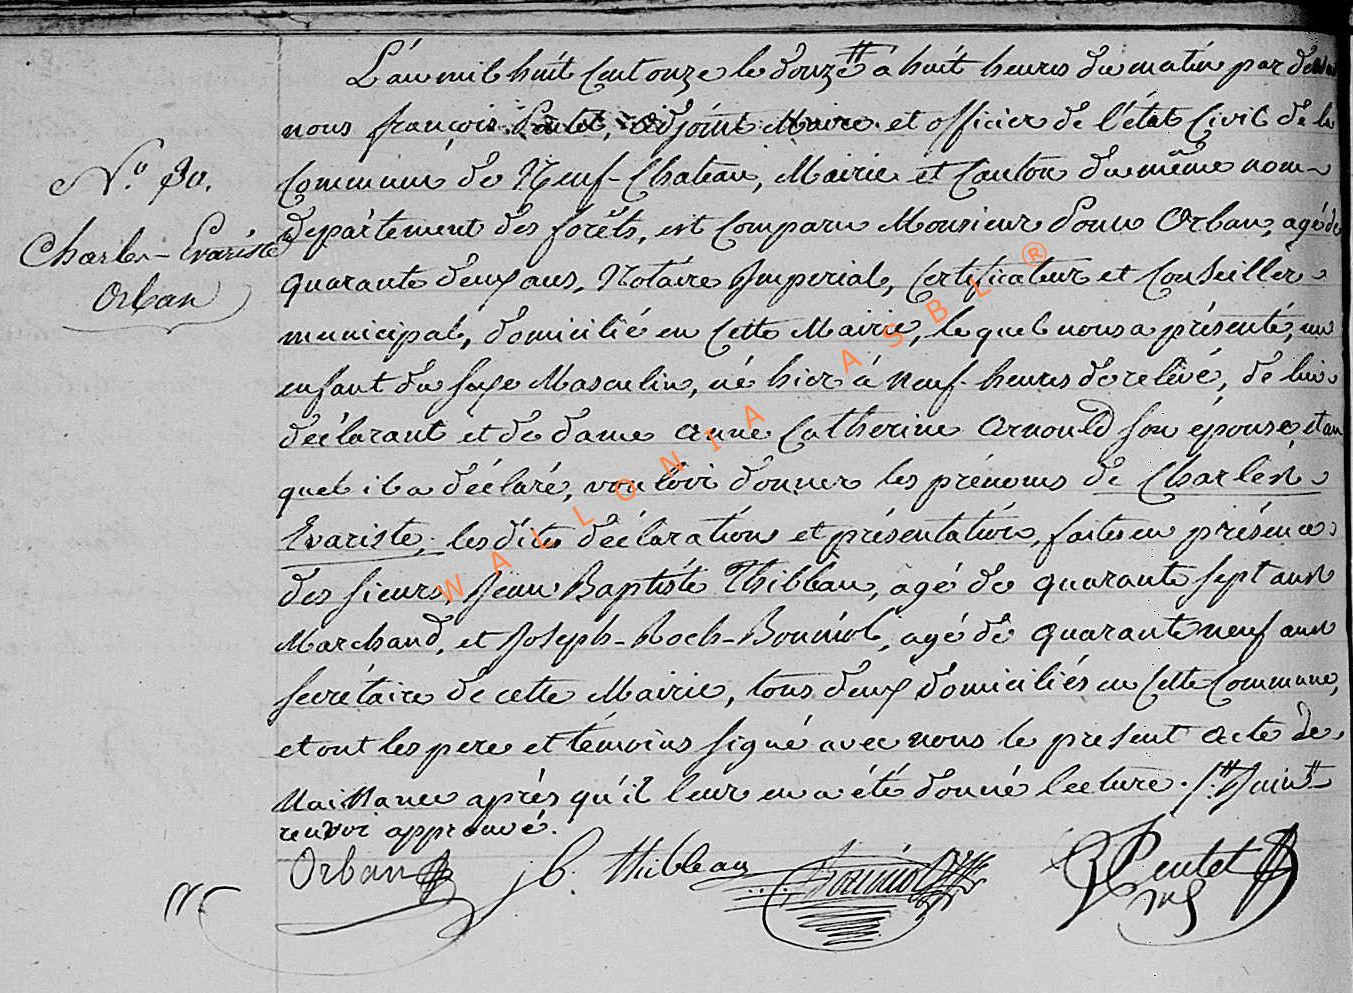 L'an mil huit cent onze le douze # à huit heures du matin par devan
nous françois Pentet, adjoint Maire et officier de l'état Civil de la
N.o 30.
Commune de Neuf-Chateau, Mairie et Canton du même nom
Charles-Evariste
Orban
département des forêts, est comparu Monsieur Orban, agé de
quarante deux ans, Notaire Imperial, Certificateur et Conseiller
municipal, domicilié en cette Mairie, lequel nous a présenté, un
enfant du sexe Masculin, né hier à neuf heures de relevé, de lui
déclarant et de dame anne Catherine Arnould son épouse, et au
quel il a déclaré, vouloir donner les prénoms de Charles
Evariste, les dites déclaration et présentation, faites en présence
des sieurs, Jean Baptiste Thibleau, agé de quarante sept ans
Marchand, et Joseph-Roch-Bouniol, agé de quarante neuf ans
secrétaire de cette Mairie, tous deux domiciliés en cette Commune,
et ont les pere et témoins signé avec nous le present acte de
Naissance après qu'il leur en a été donné lecture. # Juin #
renvoi approuvé.
Orban
jb. thibleau
Bouniol
Pentet
WALLONIA ASBL ®